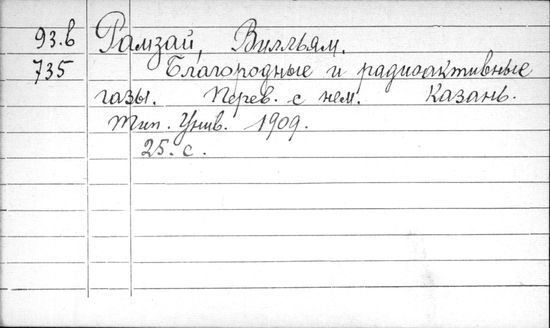 93.в Рамзай, Вилльям.
735 Благородные и радиоактивные
газы. Перев. с нем. Казань.
Тип. Унив. 1909.
25. с.